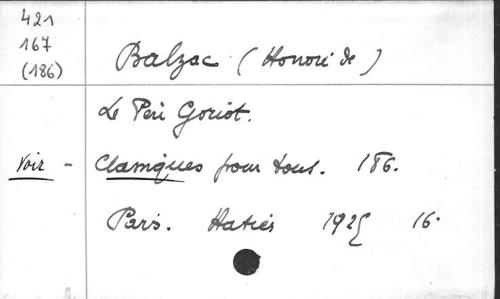 421
167
(186)
Balzac (Honoré de)
Le Père Goriot.
Voir - Classiques pour tous. 186.
Paris. Hatier 1925 16.